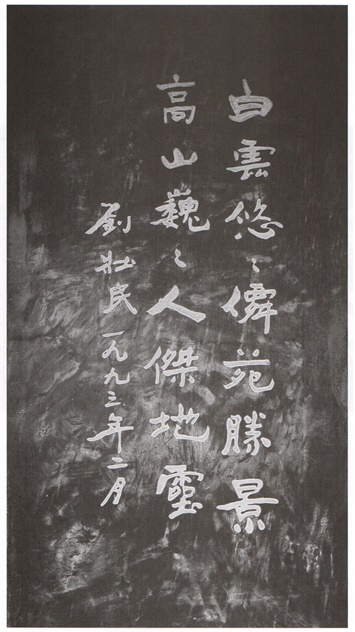 白雲悠々僊苑勝景
高山巍々人傑地靈
劉壯民一九九三年二月